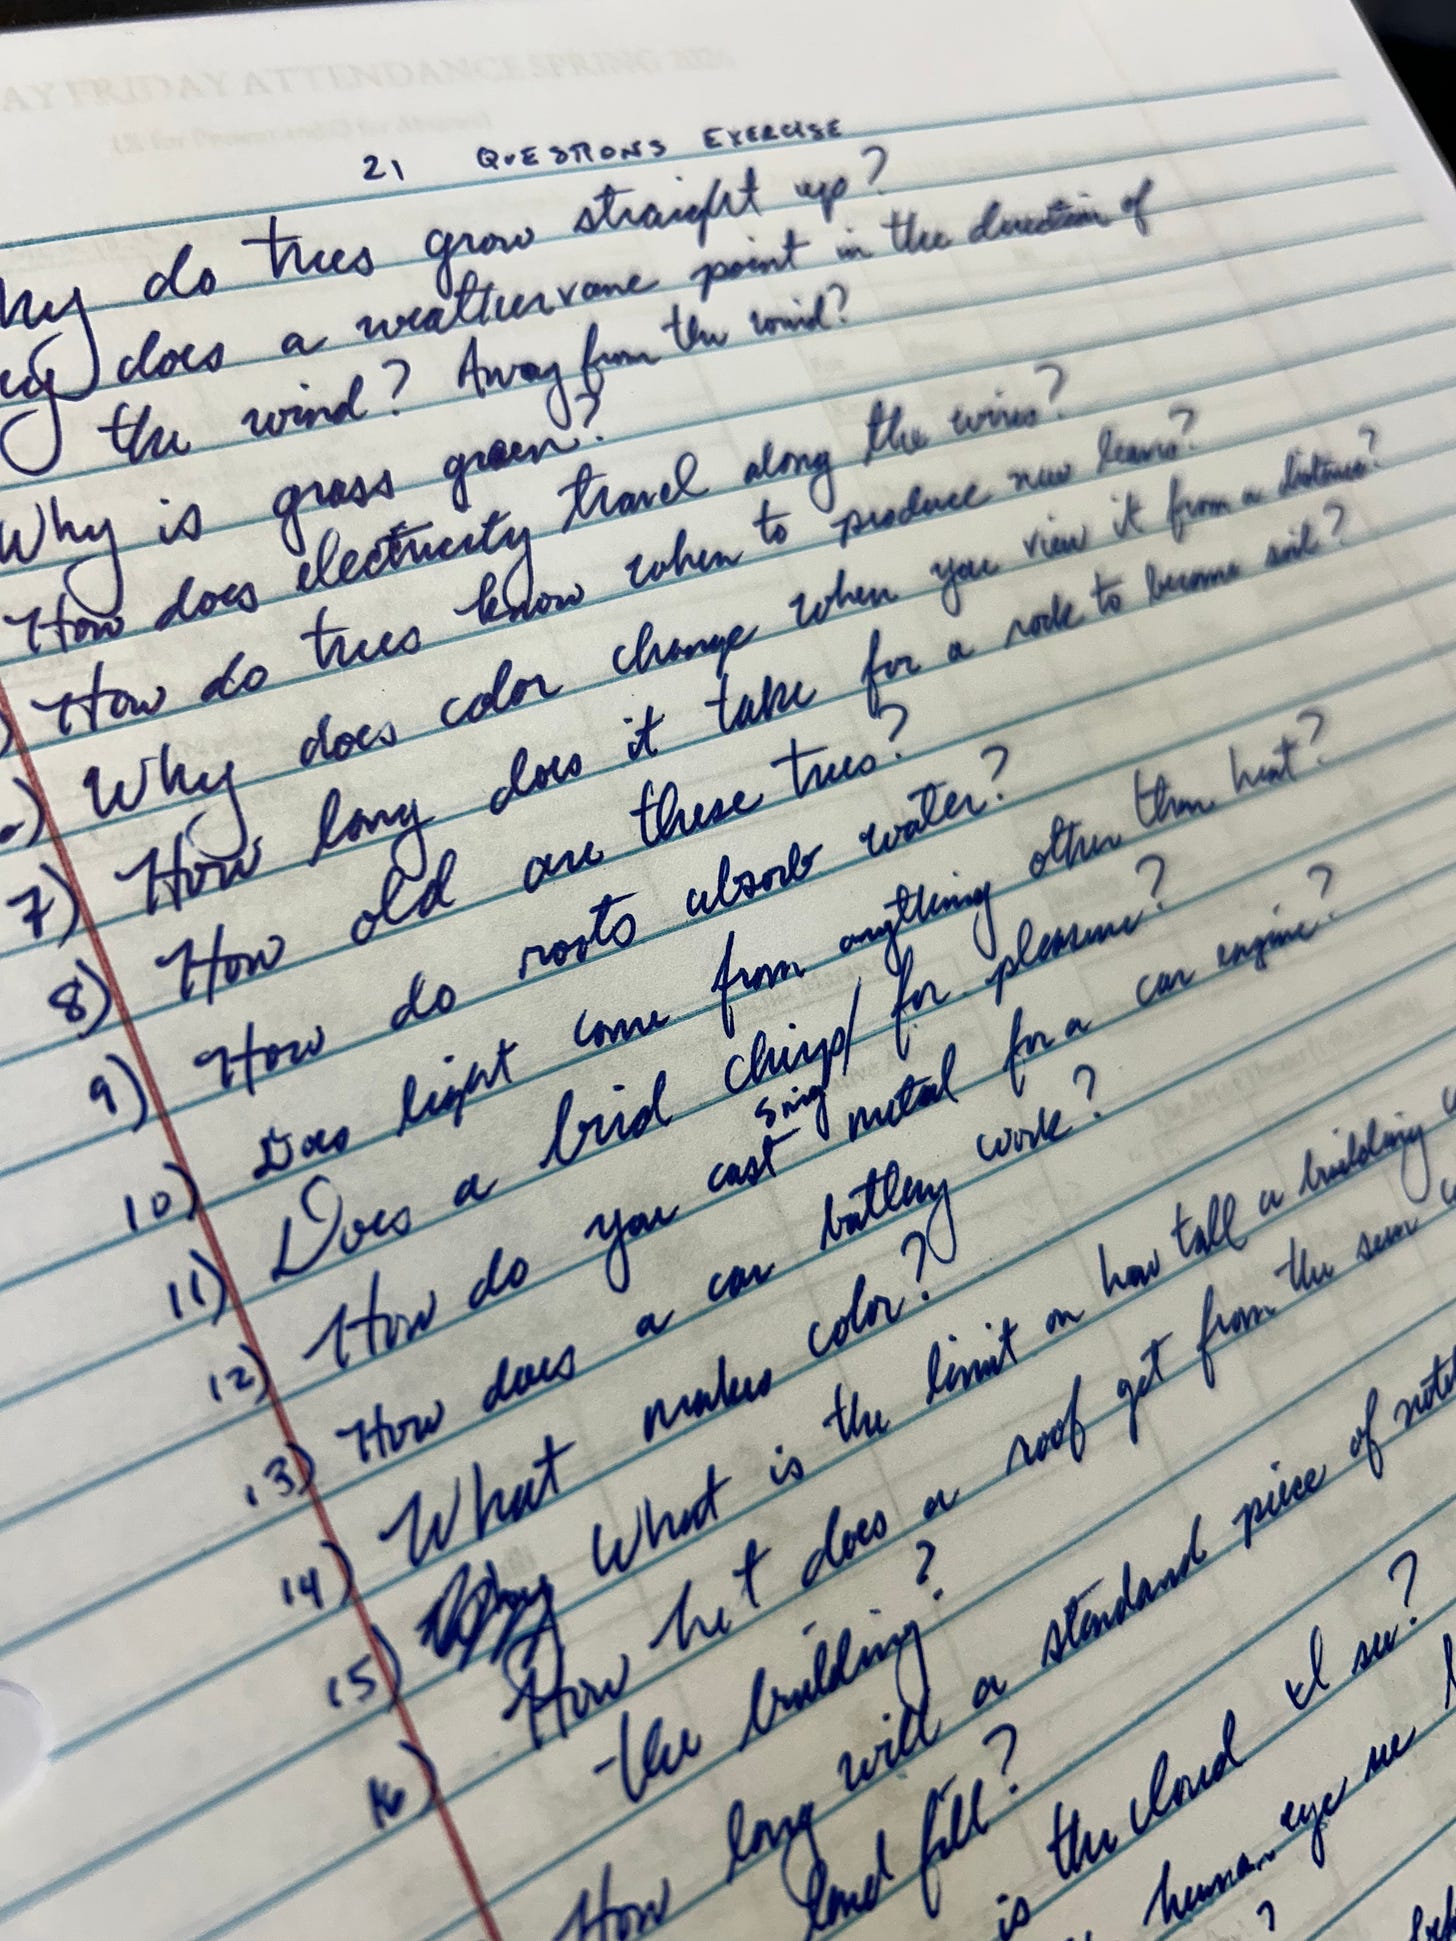 AY FRIDAY ATTENDANCE SPRING
21 QUESTIONS EXERCISE
do trees grow straight up?
does a weathervane point in the direction of
the wind? Away from the wind?
Why is grass green?
How does electricity travel along the wires?
How do trees know when to produce new leaves?
Why does color change when you view it from a distance?
7) How long does it take for a rock to become soil?
8) How old are these trees?
9) How do roots absorb water?
10) Does light come from anything other than heat?
11) Does a bird chirp/ for pleasure?
sing
12) How do you cast metal for a car engine?
13) How does a car battery work?
14) What makes color?
15) What is the limit on how tall a building
16) How hot does a roof get from the sun
the building?
How long will a standard piece of
land fill?
is the cloud I see?
human eye see
?